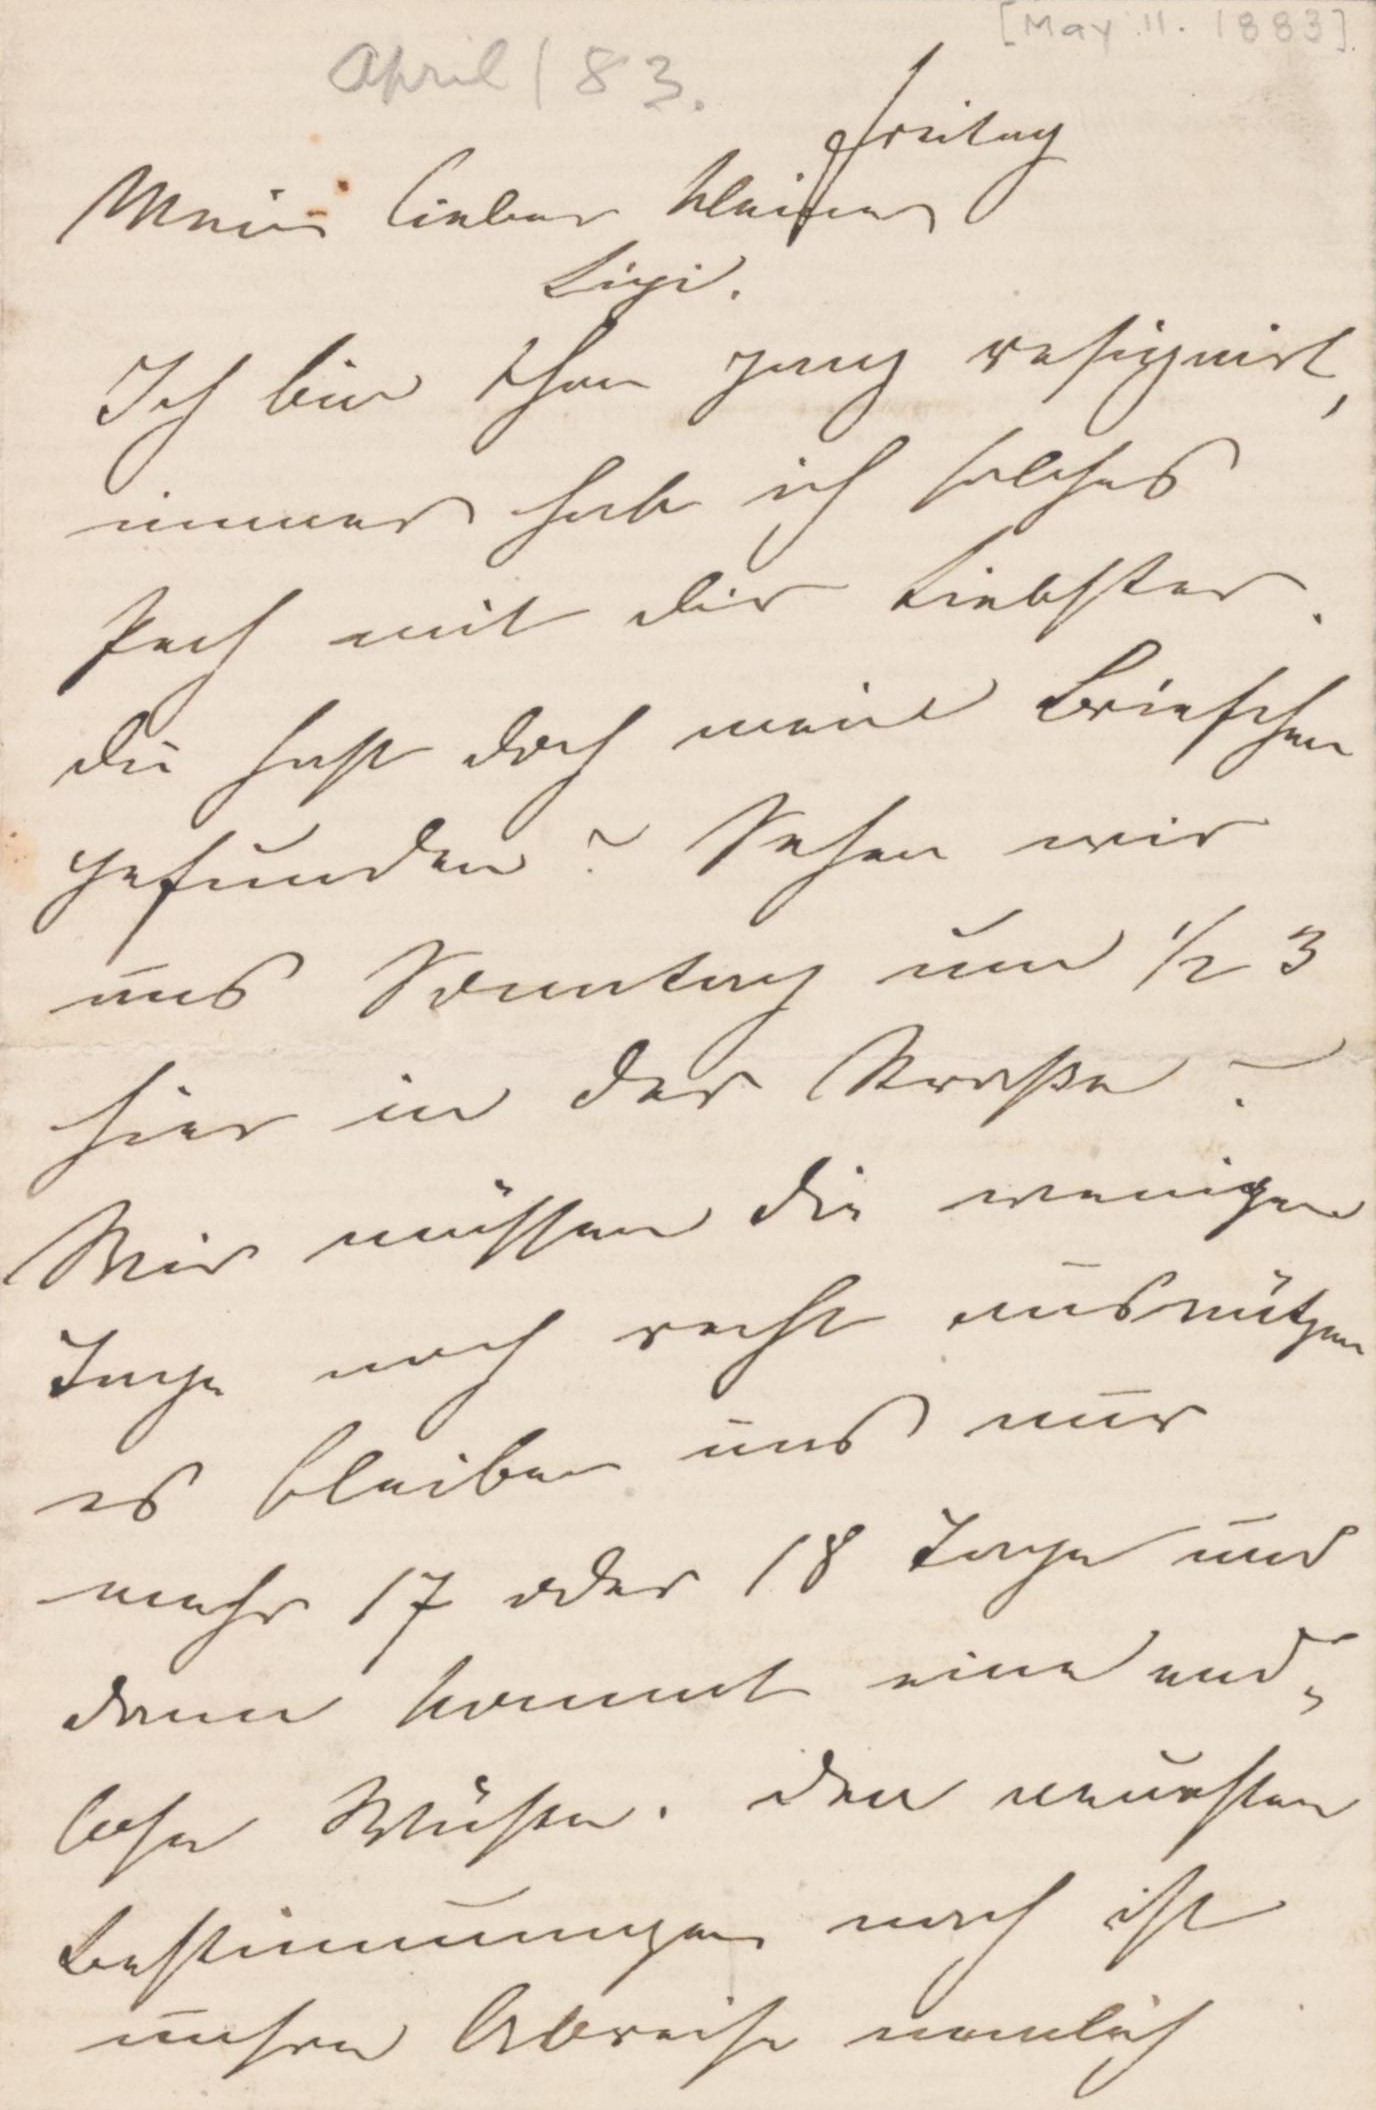 [May 11. 1883].
April / 83.
Freitag
Mein lieber kleiner
Ligi.
Ich bin schon ganz resignirt,
immer hab ich solches
Pech mit dir Liebster.
du hast doch mein Briefchen
gefunden? Sehen wir
uns Sonntag um ½ 3
hier in der Strasse?
Wir müssen die wenigen
Tage noch recht ausnützen
es bleiben uns nur
mehr 17 oder 18 Tage und
dann kommt eine end-
lose Wüste. den neuesten
Bestimmungen nach ist
unsere Abreise nemlich